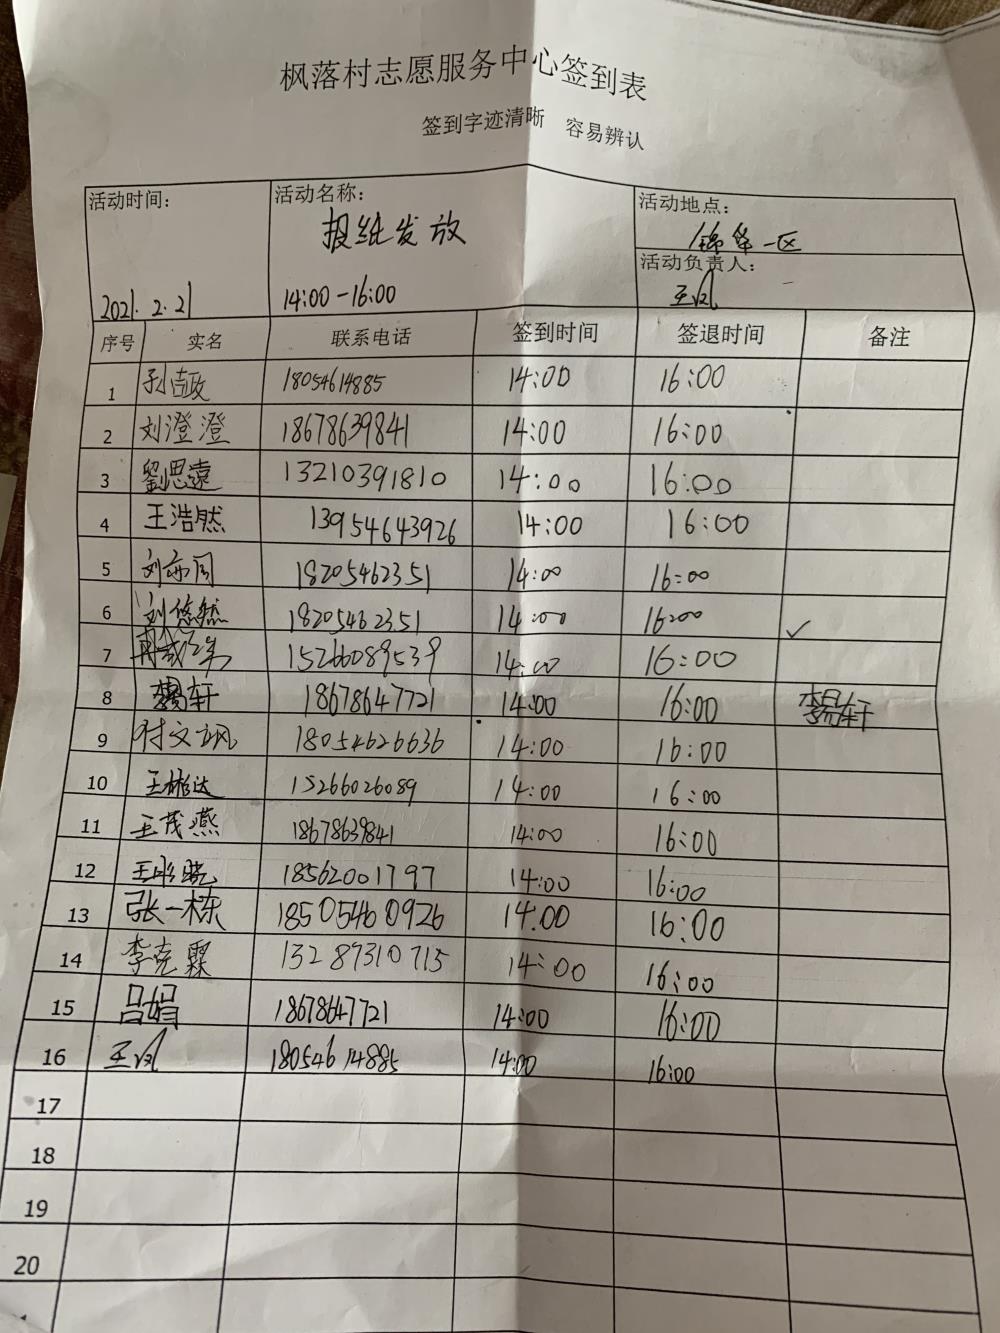 枫落村志愿服务中心签到表
签到字迹清晰 容易辨认
活动时间: 活动名称: 活动地点:
报纸发放 锦华一区
活动负责人:
2021.2.21 14:00-16:00 王凤
序号 实名 联系电话 签到时间 签退时间 备注
1 孙吉政 18054614885 14:00 16:00
2 刘澄澄 18678639841 14:00 16:00
3 劉思遠 13210391810 14:00 16:00
4 王浩然 13954643926 14:00 16:00
5 刘亦同 18205462351 14:00 16:00
6 刘悠然 18205462351 14:00 16:00
7 15266089539 14:00 16:00 ✓
8 李昂轩 18678647721 14:00 16:00 李昂轩
9 付文飒 18054626636 14:00 16:00
10 王彬达 15266026089 14:00 16:00
11 王茂燕 18678639841 14:00 16:00
12 王晓 18562001797 14:00 16:00
13 张一栋 18505460926 14:00 16:00
14 李克霖 13287310715 14:00 16:00
15 吕娟 18678647721 14:00 16:00
16 王凤 18054614885 14:00 16:00
17
18
19
20